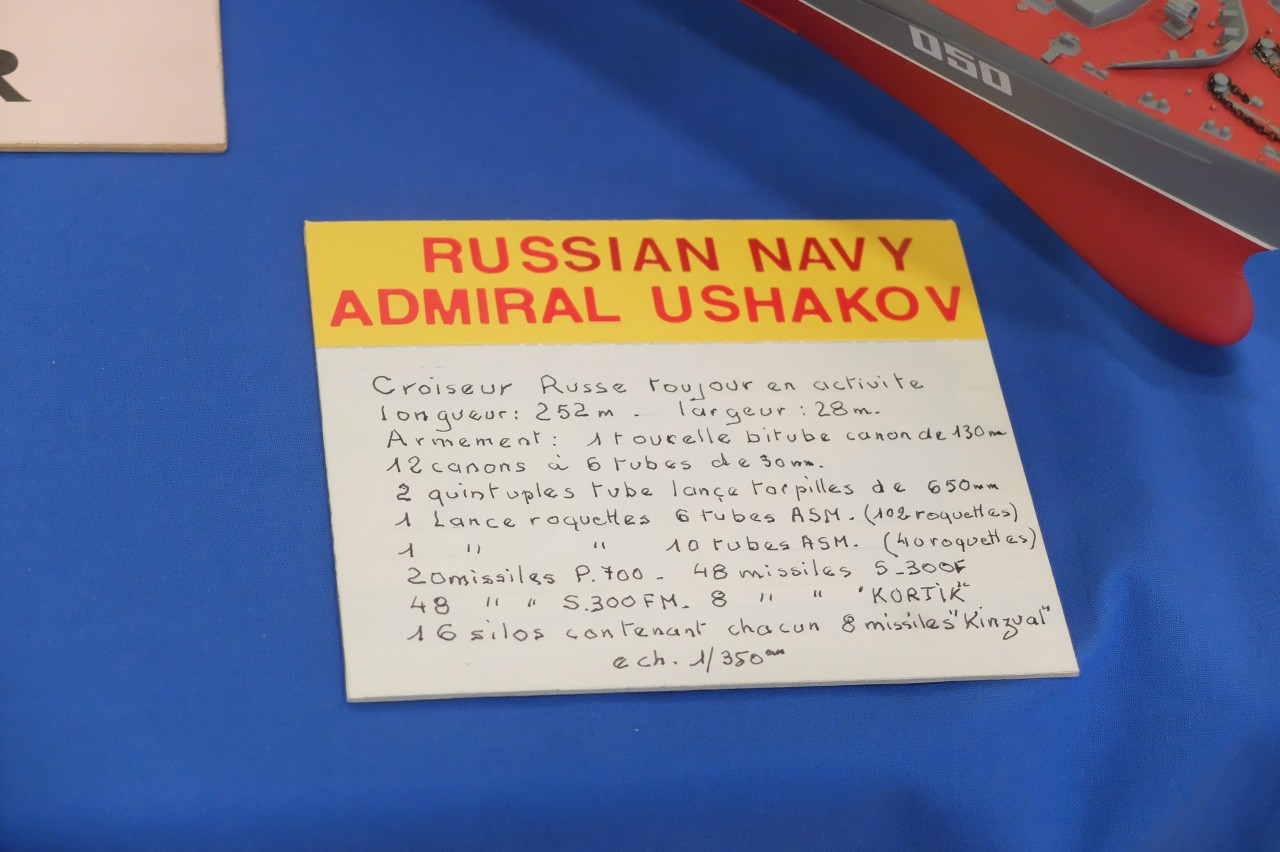 R
050
RUSSIAN NAVY
ADMIRAL USHAKOV
Croiseur Russe toujour en activite
longueur: 252 m. largeur: 28m.
Armement: 1 tourelle bitube canon de 130mm
12 canons à 6 tubes de 30mm.
2 quintuples tube lançe torpilles de 650mm
1 Lance roquettes 6 tubes ASM. (102 roquettes)
1 " " 10 tubes ASM. (40 roquettes)
20 missiles P.700 - 48 missiles S-300F
48 " " S.300FM. 8 " " "KORTIK"
16 silos contenant chacun 8 missiles "Kinzval"
ech. 1/350em